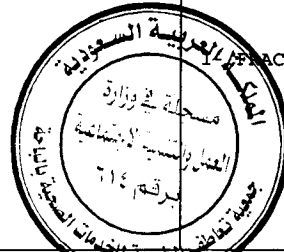 المملكة العربية السعودية
مسجلة في وزارة
العمل والتنمية الاجتماعية
برقم ٦١٤
جمعية تعاطف الخدمات الصحية بالباحة